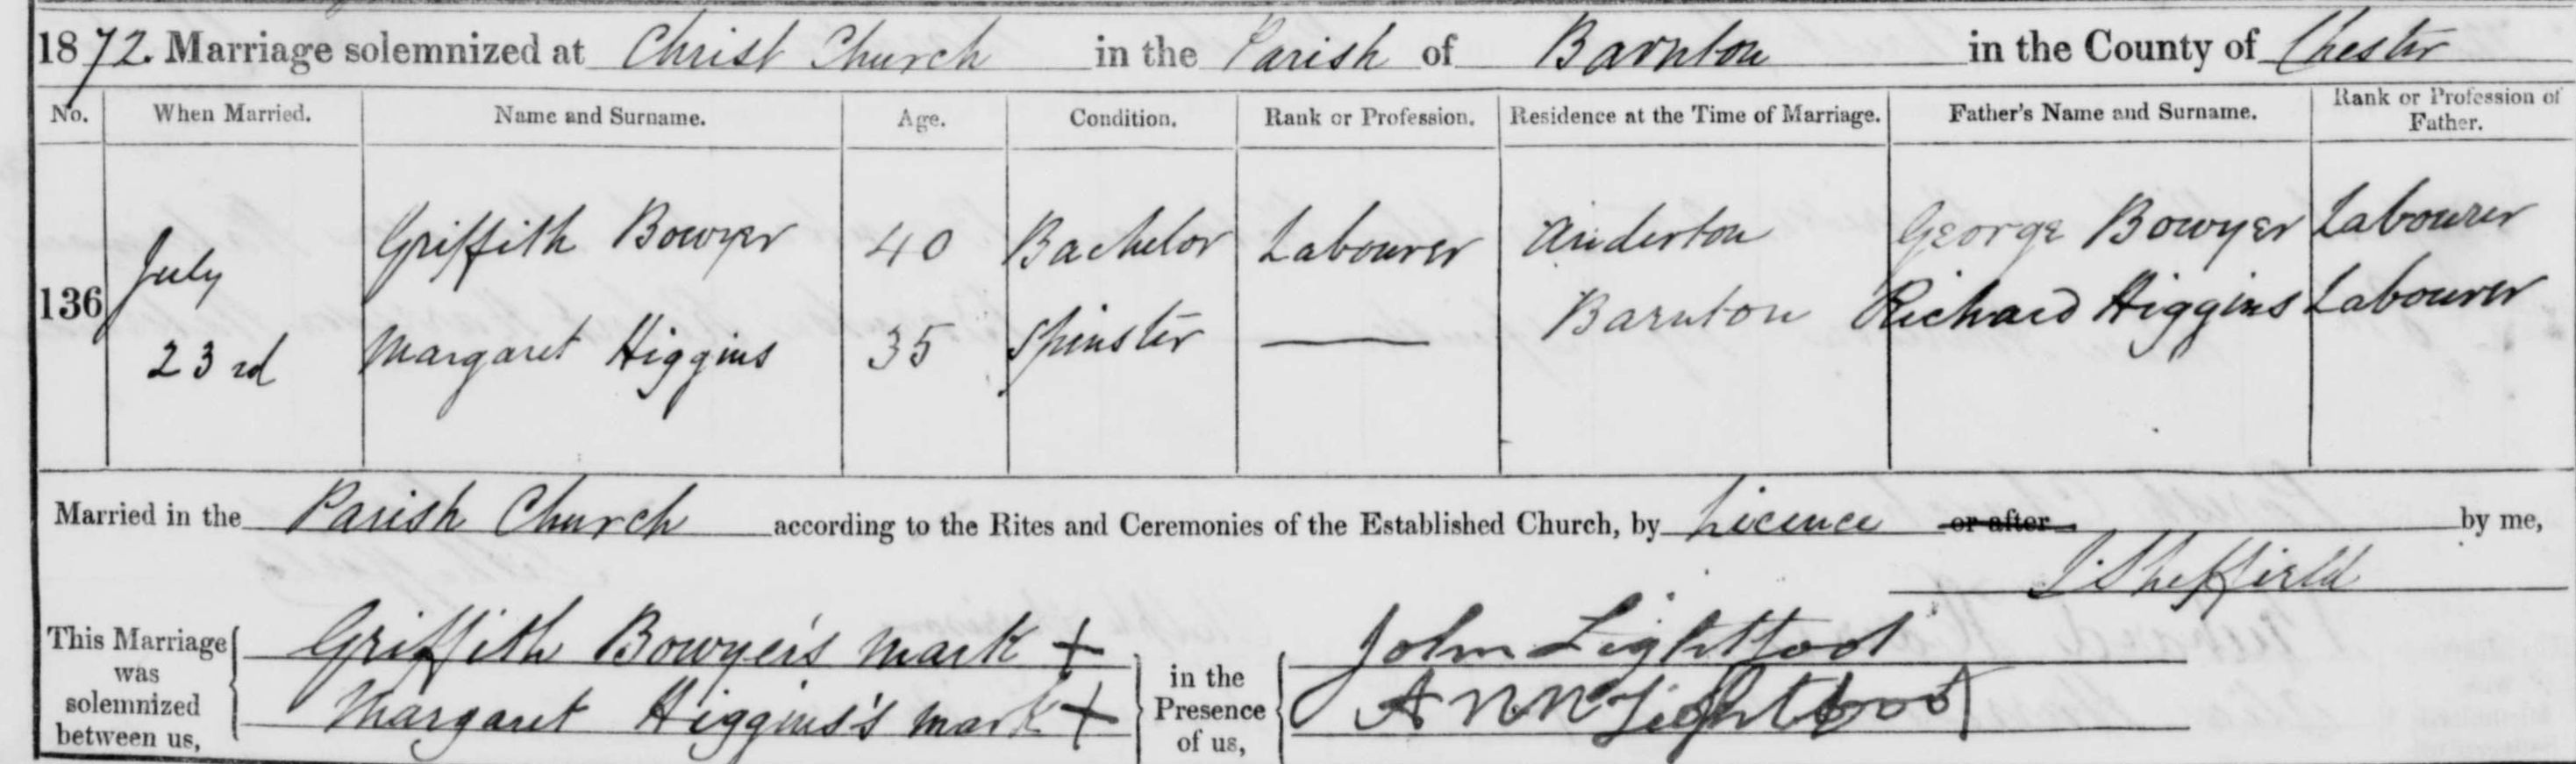 1872. Marriage solemnized at Christ Church in the Parish of Barnton in the County of Chester
No. When Married. Name and Surname. Age. Condition. Rank or Profession. Residence at the Time of Marriage. Father's Name and Surname. Rank or Profession of Father.
136 July 23rd
Griffith Bowyer 40 Bachelor Labourer Anderton George Bowyer Labourer
Margaret Higgins 35 Spinster — Barnton Richard Higgins Labourer
Married in the Parish Church according to the Rites and Ceremonies of the Established Church, by Licence or after by me,
J. Sheffield
This Marriage was solemnized between us,
Griffith Bowyer's mark +
Margaret Higgins's mark +
in the Presence of us,
John Lightfoot
Ann Lightfoot